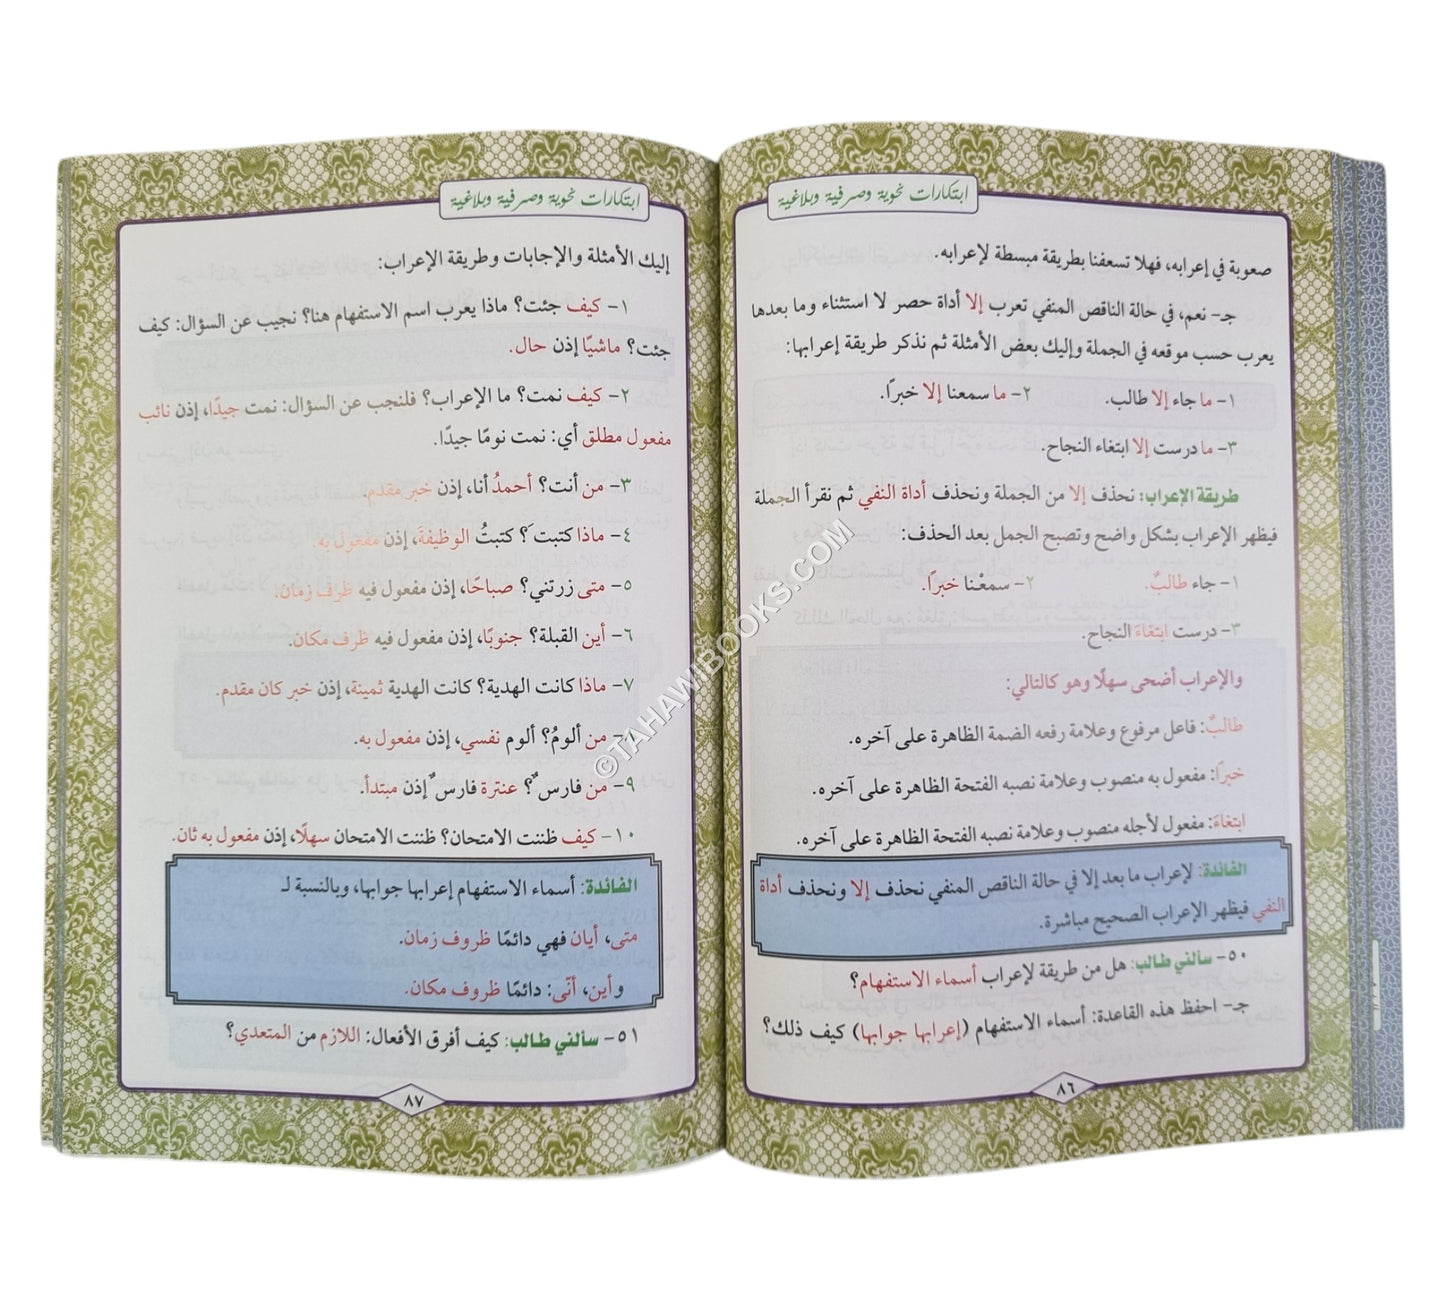 ابتكارات نحوية وصرفية وبلاغية
صعوبة في إعرابه، فهلا تسعفنا بطريقة مبسطة لإعرابه.
جـ- نعم، في حالة الناقص المنفي تعرب إلا أداة حصر لا استثناء وما بعدها
يعرب حسب موقعه في الجملة وإليك بعض الأمثلة ثم نذكر طريقة إعرابها:
١- ما جاء إلا طالب. ٢- ما سمعنا إلا خبرًا.
٣- ما درست إلا ابتغاء النجاح.
طريقة الإعراب: نحذف إلا من الجملة ونحذف أداة النفي ثم نقرأ الجملة
فيظهر الإعراب بشكل واضح وتصبح الجمل بعد الحذف:
١- جاء طالبٌ. ٢- سمعْنا خبرًا.
٣- درست ابتغاءَ النجاح.
والإعراب أضحى سهلًا وهو كالتالي:
طالبٌ: فاعل مرفوع وعلامة رفعه الضمة الظاهرة على آخره.
خبرًا: مفعول به منصوب وعلامة نصبه الفتحة الظاهرة على آخره.
ابتغاءَ: مفعول لأجله منصوب وعلامة نصبه الفتحة الظاهرة على آخره.
الفائدة: لإعراب ما بعد إلا في حالة الناقص المنفي نحذف إلا ونحذف أداة
النفي فيظهر الإعراب الصحيح مباشرة.
٥٠- سألني طالب: هل من طريقة لإعراب أسماء الاستفهام؟
جـ- احفظ هذه القاعدة: أسماء الاستفهام (إعرابها جوابها) كيف ذلك؟
٨٦
ابتكارات نحوية وصرفية وبلاغية
إليك الأمثلة والإجابات وطريقة الإعراب:
١- كيف جئت؟ ماذا يعرب اسم الاستفهام هنا؟ نجيب عن السؤال: كيف
جئت؟ ماشيًا إذن حال.
٢- كيف نمت؟ ما الإعراب؟ فلنجب عن السؤال: نمت جيدًا، إذن نائب
مفعول مطلق أي: نمت نومًا جيدًا.
٣- من أنت؟ أحمدُ أنا، إذن خبر مقدم.
٤- ماذا كتبتَ؟ كتبتُ الوظيفةَ، إذن مفعول به.
٥- متى زرتني؟ صباحًا، إذن مفعول فيه ظرف زمان.
٦- أين القبلة؟ جنوبًا، إذن مفعول فيه ظرف مكان.
٧- ماذا كانت الهدية؟ كانت الهدية ثمينة، إذن خبر كان مقدم.
٨- من ألومُ؟ ألوم نفسي، إذن مفعول به.
٩- من فارسٌ؟ عنترة فارسٌ إذن مبتدأ.
١٠- كيف ظننت الامتحان؟ ظننت الامتحان سهلًا، إذن مفعول به ثان.
الفائدة: أسماء الاستفهام إعرابها جوابها، وبالنسبة لـ
متى، أيان فهي دائمًا ظروف زمان.
وأين، أنّى: دائمًا ظروف مكان.
٥١- سألني طالب: كيف أفرق الأفعال: اللازم من المتعدي؟
٨٧
©TAHAWIBOOKS.COM